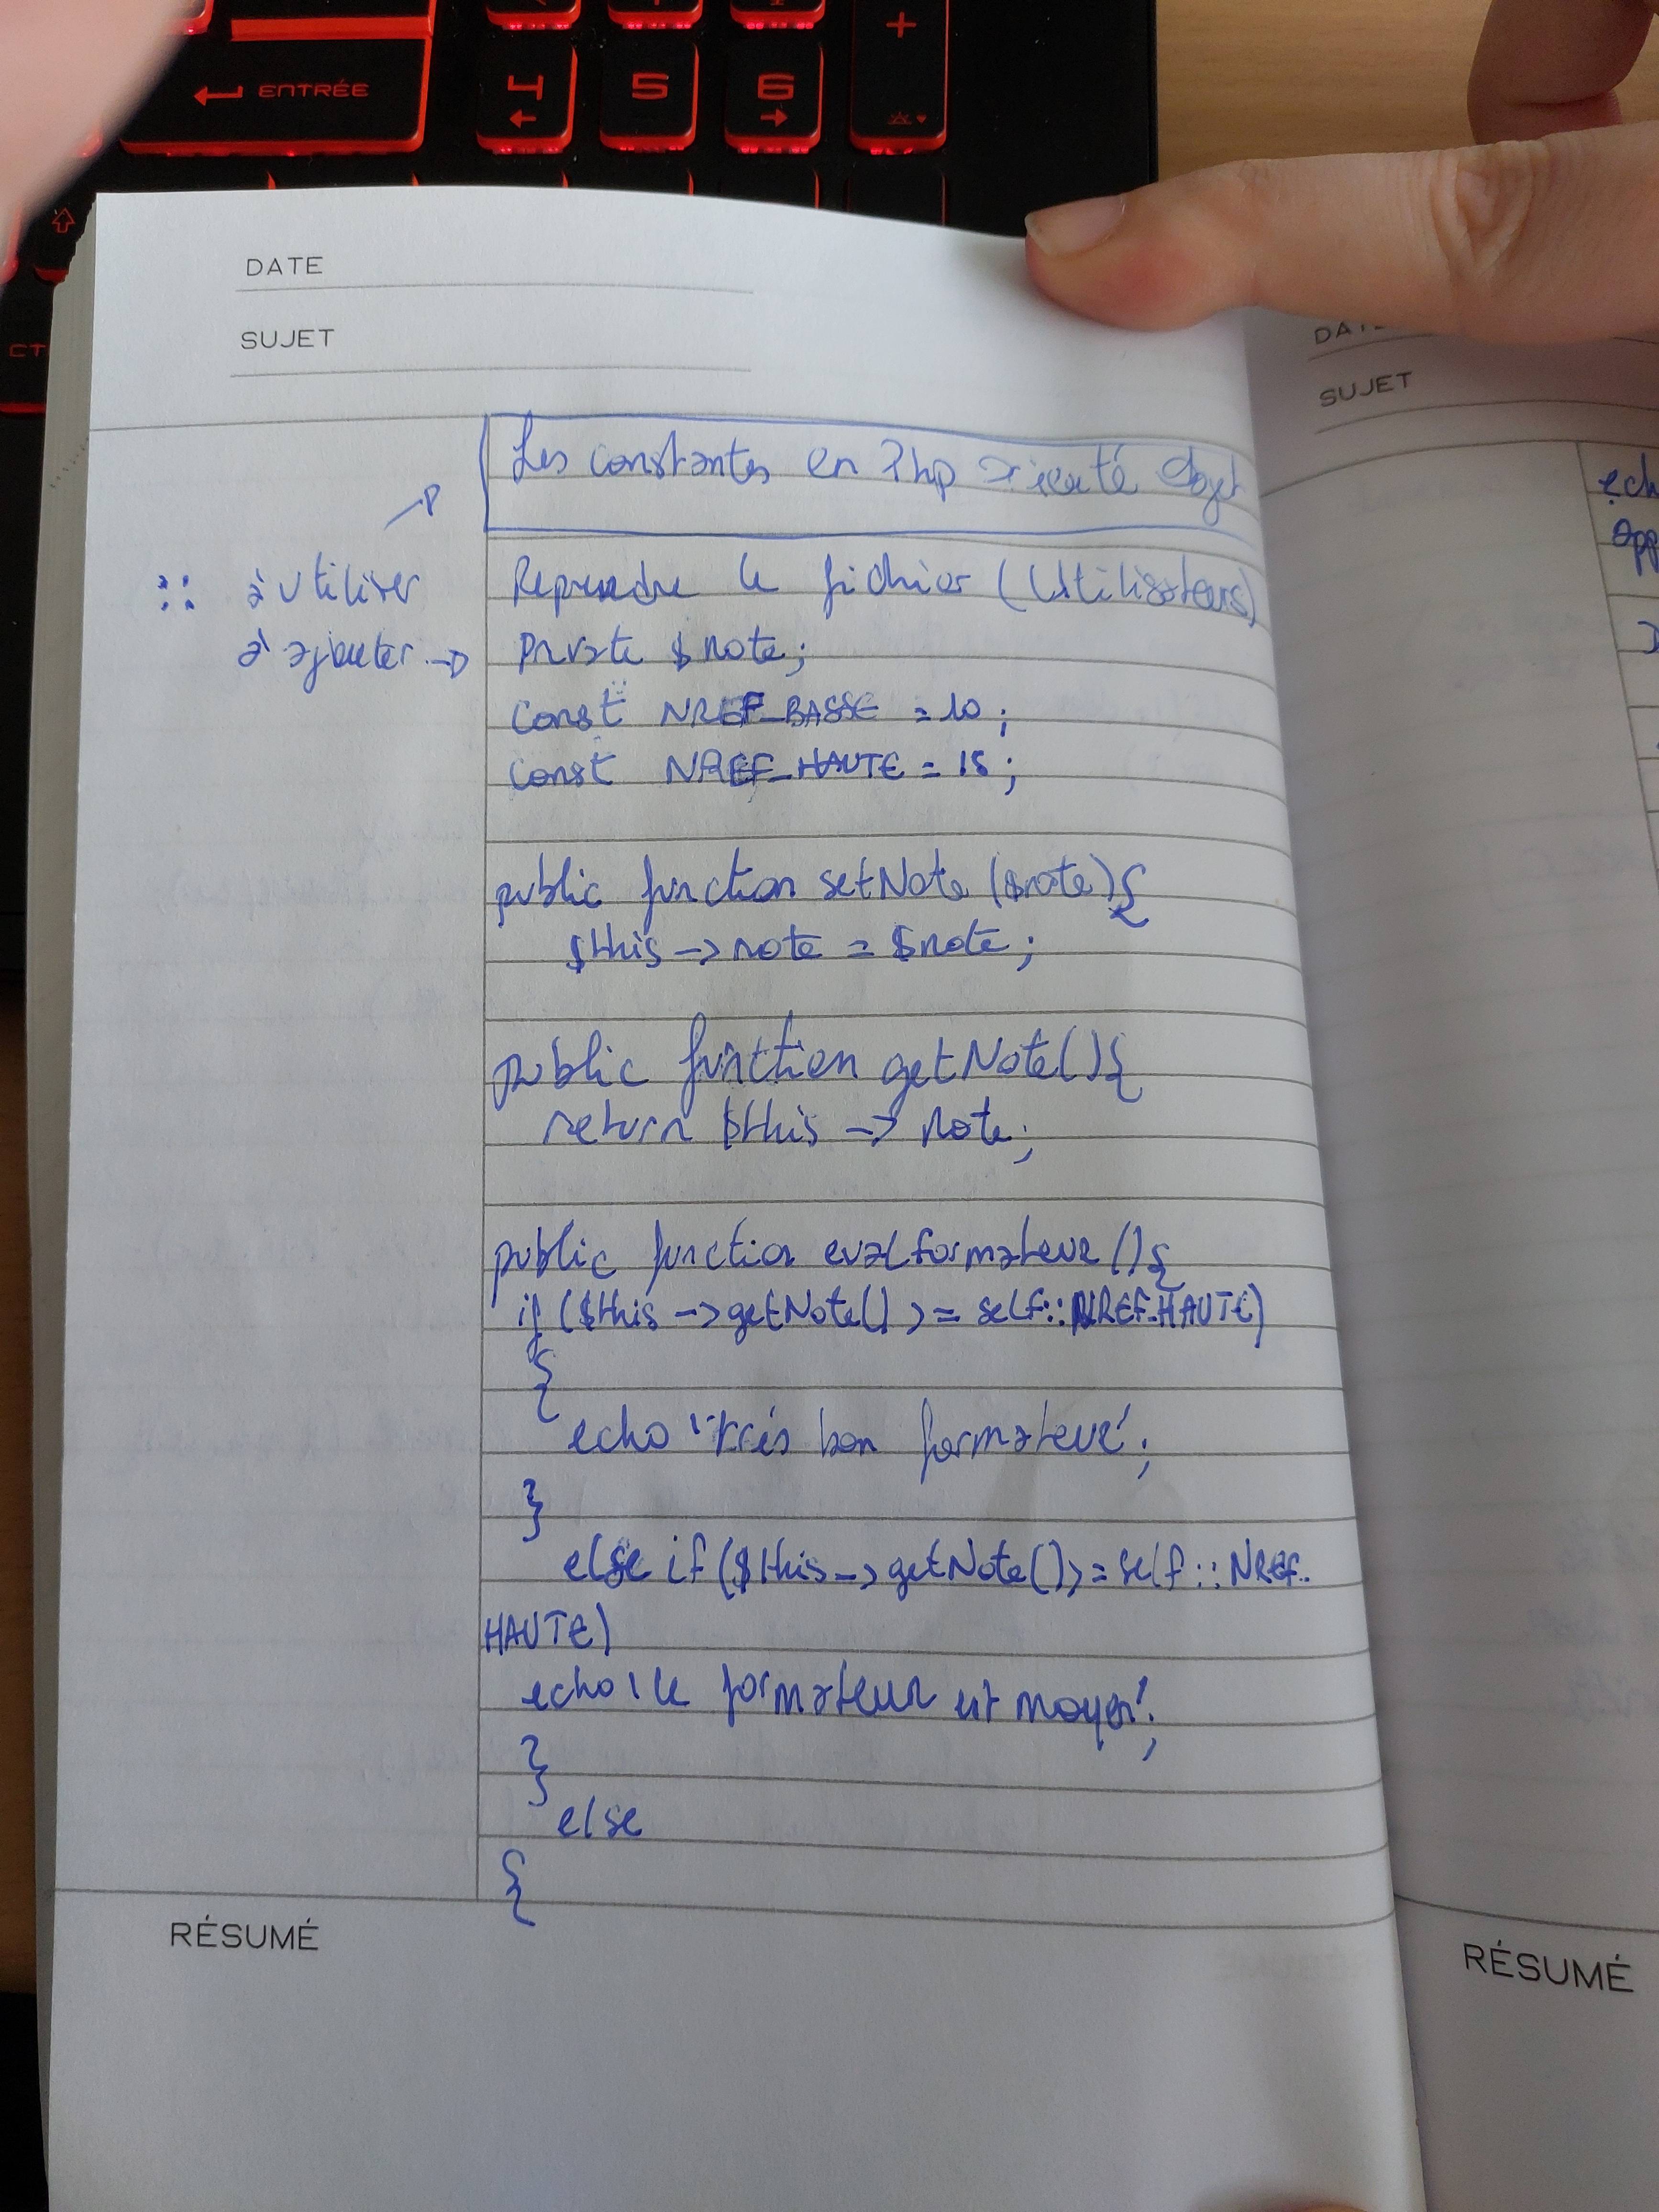 ENTRÉE
4
5
6
+
DATE
SUJET
DATE
SUJET
Les constantes en Php orienté objet
:: à utiliser
Reprendre le fichier (Utilisateurs)
à ajouter →
private $note;
const NREF_BASSE = 10;
const NREF_HAUTE = 15;
public function setNote ($note){
$this -> note = $note;
public function getNote(){
return $this -> note;
public function evalformateur (){
if ($this -> getNote() >= self::NREF_HAUTE)
{
echo 'très bon formateur';
}
else if ($this -> getNote() >= self::NREF_
HAUTE)
echo 'le formateur est moyen';
}
else
{
RÉSUMÉ
RÉSUMÉ